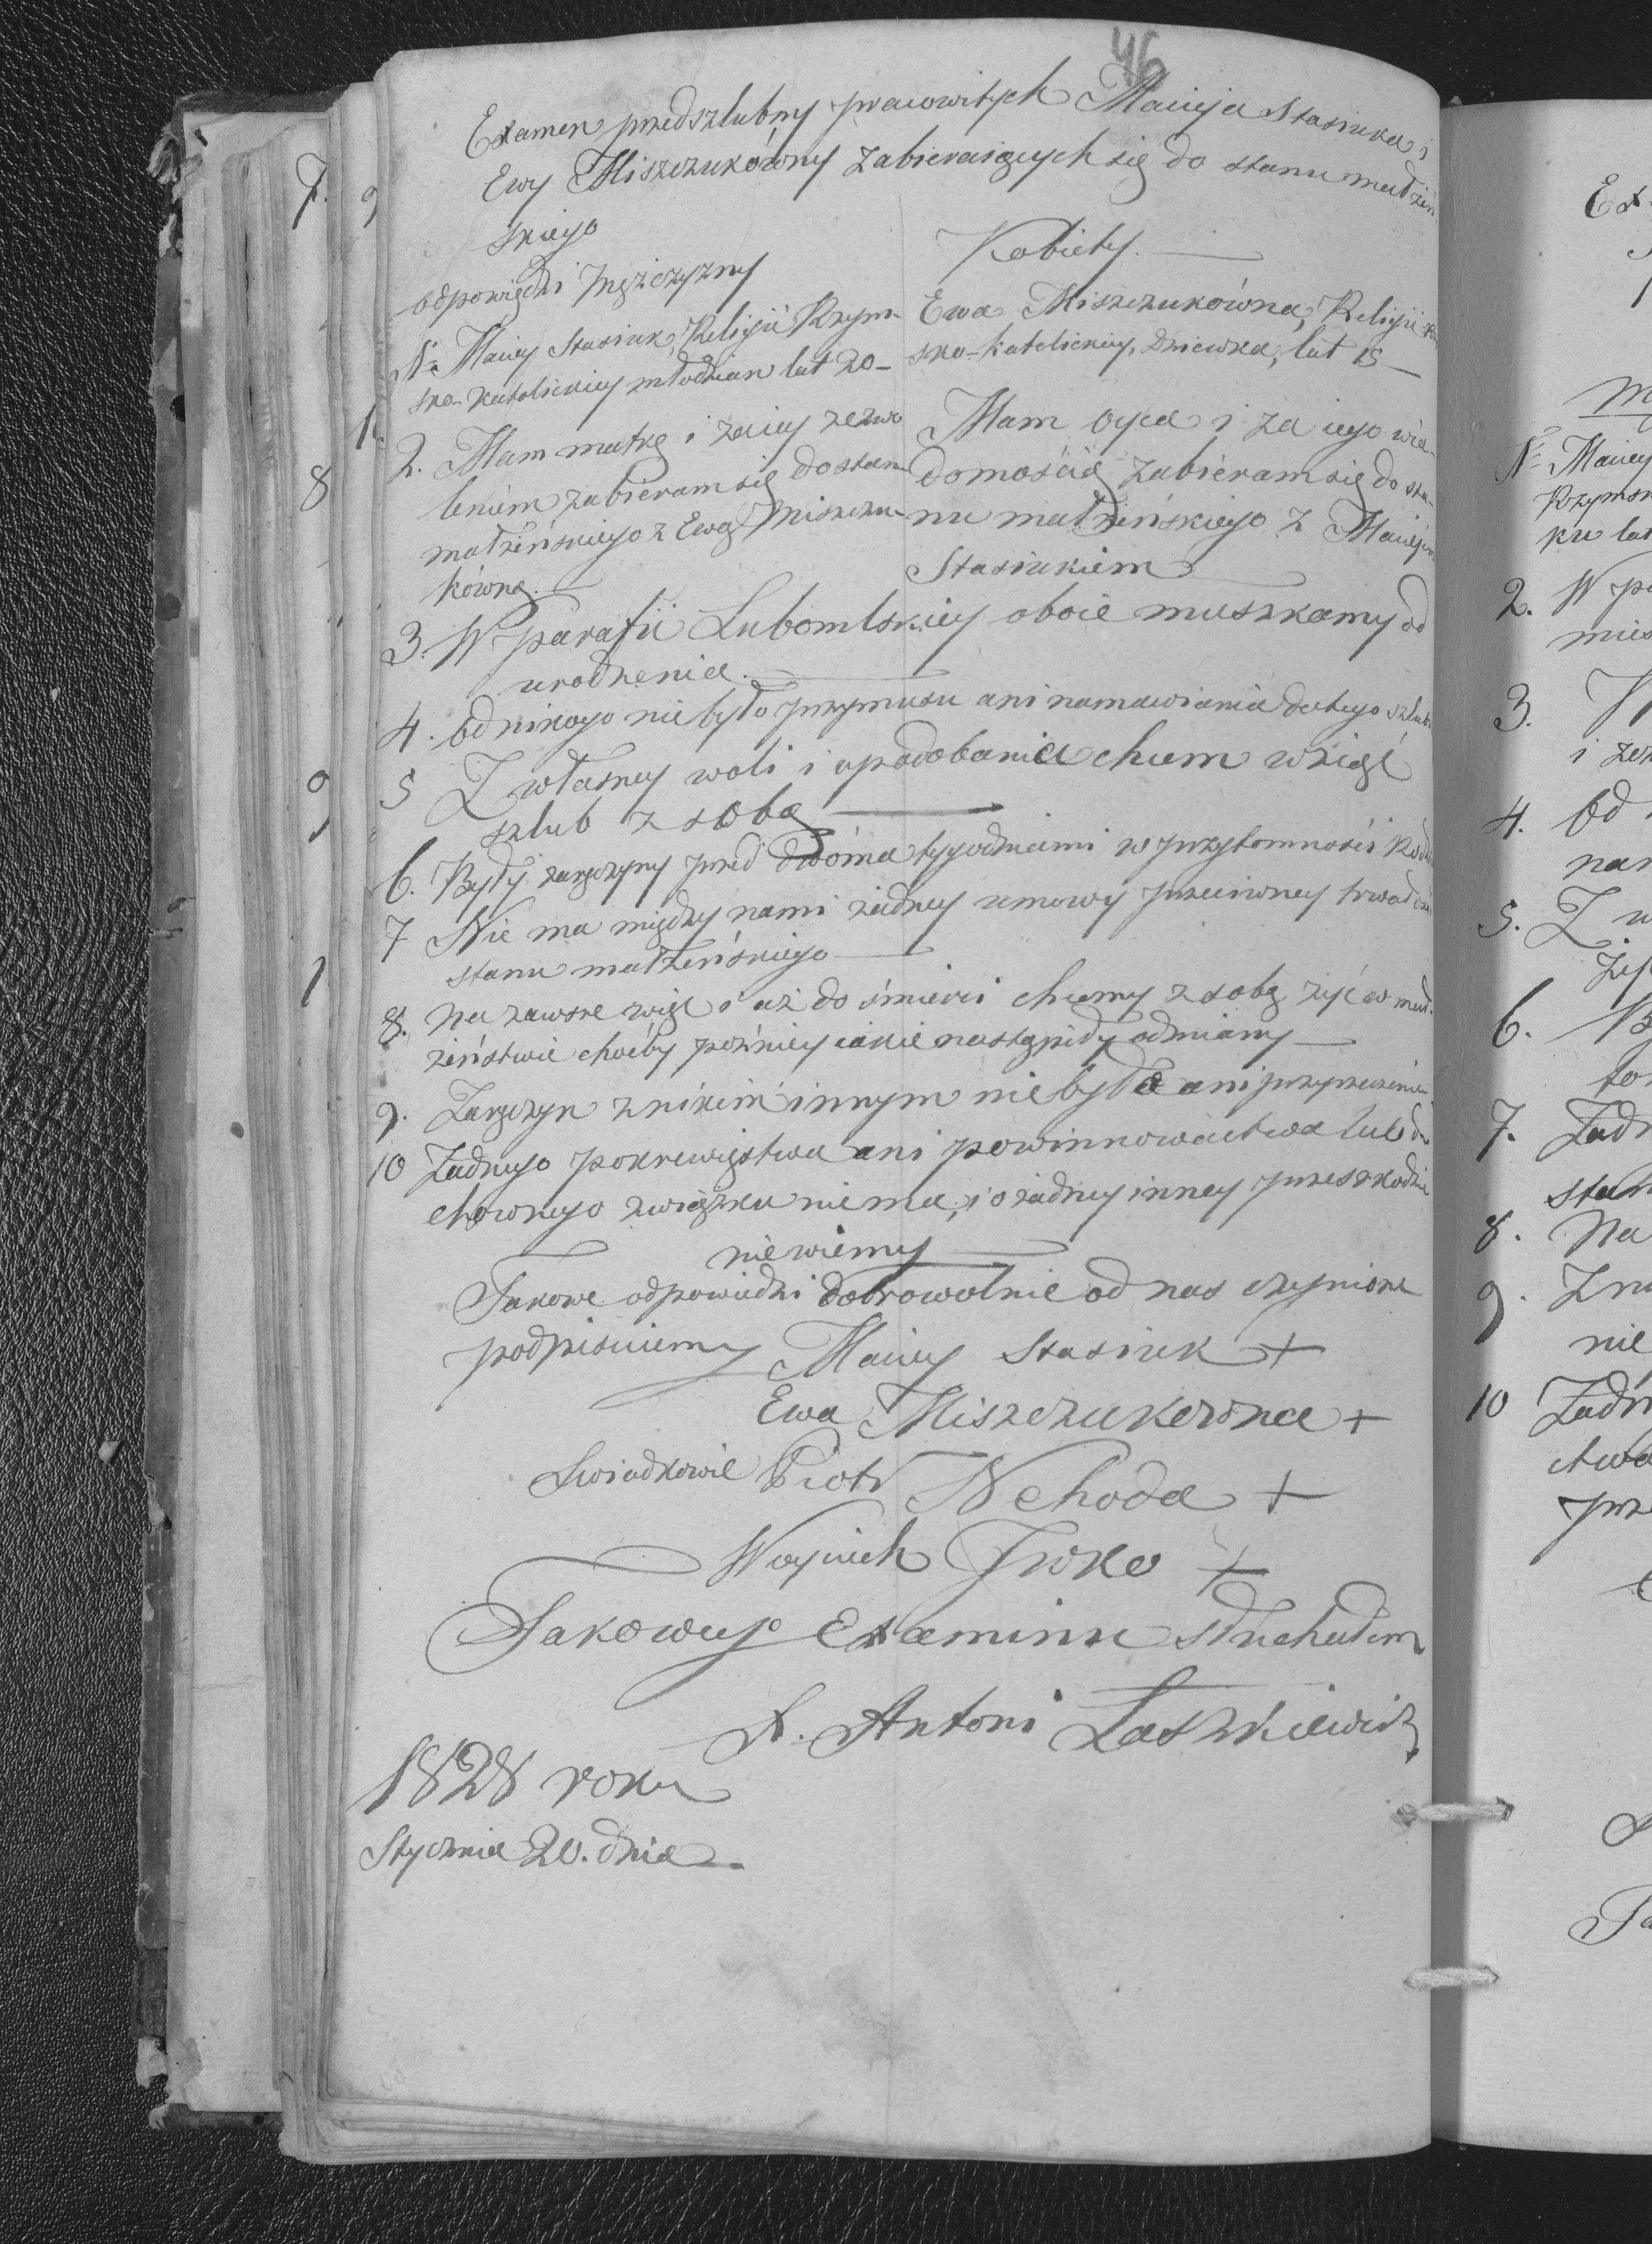 46
Examen przedszlubny pracowitych Macieja Stasiuka i
Ewy Miszczukówny zabieraiących się do stanu małżeń
skiego
odpowiedzi Mężczyzny
Nr Maciey Stasiuk, Religii Rzym-
sko-katolickiey młodzian lat 20-
2. Mam matkę i za iey zezwo
leniem zabieram się do stanu
małżeńskiego z Ewą Miszczu-
kówną.
Kobiety.
Ewa Miszczukówna, Religii
sko-katolickiey, Dziewka, lat 18
Mam oyca i za iego wia-
domością zabieram się do sta-
nu małżeńskiego z Maciejem
Stasiukiem
3. W parafii Lubomlskiey oboie mieszkamy od
urodzenia.
4. Od nikogo nie było przymusu ani namawiania do tego szlubu
5 Z własney woli i upodobania chcem wziąść
szlub z sobą
6. Były zaręczyny przed dwóma tygodniami w przytomności
7 Nie ma między nami żadney umowy przeciwney trwałości
stanu małżeńskiego
8. Na zawsze więc i aż do śmierci chcemy z sobą żyć w mał.
żeństwie choćby pozniey iakie nastąpiły odmiany
9. Zaręczyn z nikim innym nie było ani przyrzeczenia
10 Żadnego pokrewięstwa ani powinnowactwa lub du
chownego związku niema, i o żadney inney przeszkodzie
niewiemy
Takowe odpowiedzi dobrowolnie od nas czynione
podpisuiemy Maciey Stasiuk +
Ewa Miszczukowna +
Swiadkowie Piotr Nehoda +
Woyciech Iwko +
Takowego Examinu słuchałem
X. Antoni Laszkiewicz
1828 roku
Stycznia 20. dnia
7.
9
1.
8
9
1
Ex
Nr Maciey
Rzymsk
ku lat
2. W pa
mies
3.
i zez
4. Od
nam
5. Z w
6. B
7. Żadn
stan
8. Na
9.
nie
10 Żadn
ctwa
prz